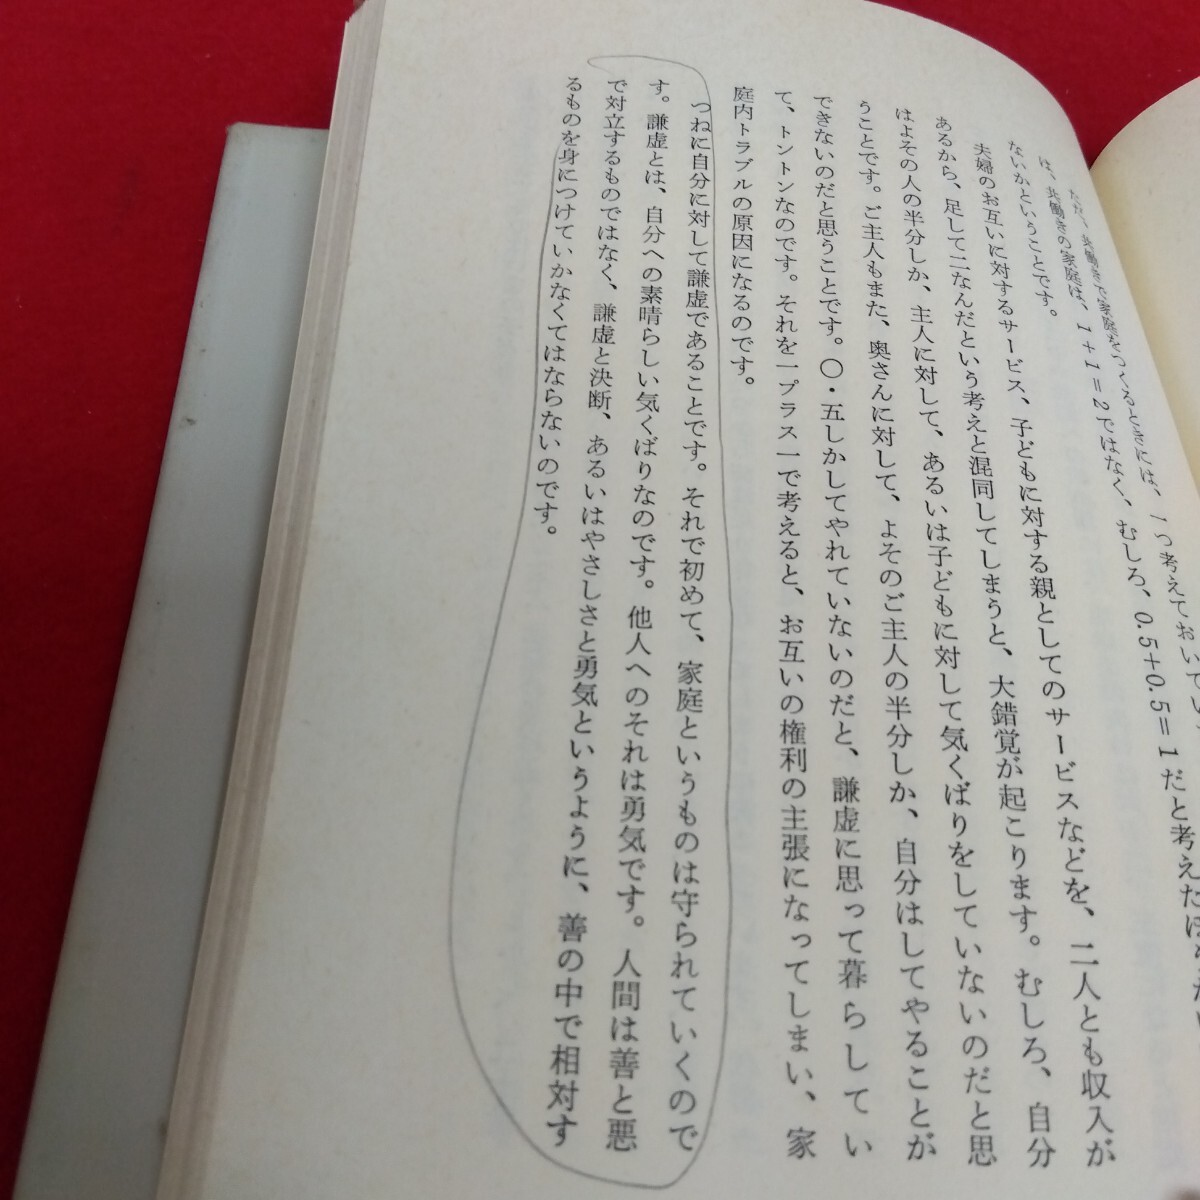 ただ、共働きで家庭をつくるときには、1つ考えておいてい
は、共働きの家庭は、1+1=2ではなく、むしろ、0.5+0.5=1だと考えたほ
ないかということです。
夫婦のお互いに対するサービス、子どもに対する親としてのサービスなどを、二人とも収入が
あるから、足して二なんだという考えと混同してしまうと、大錯覚が起こります。むしろ、自分
はよその人の半分しか、主人に対して、あるいは子どもに対して気くばりをしていないのだと思
うことです。ご主人もまた、奥さんに対して、よそのご主人の半分しか、自分はしてやることが
できないのだと思うことです。〇・五しかしてやれていないのだと、謙虚に思って暮らしてい
て、トントンなのです。それを一プラス一で考えると、お互いの権利の主張になってしまい、家
庭内トラブルの原因になるのです。
つねに自分に対して謙虚であることです。それで初めて、家庭というものは守られていくので
す。謙虚とは、自分への素晴らしい気くばりなのです。他人へのそれは勇気です。人間は善と悪
で対立するものではなく、謙虚と決断、あるいはやさしさと勇気というように、善の中で相対す
るものを身につけていかなくてはならないのです。